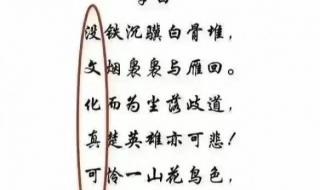 没铁沉骥白骨堆，
文烟袅袅与雁回。
化而为尘落歧道，
真楚英雄亦可悲！
可怜一山花鸟色，